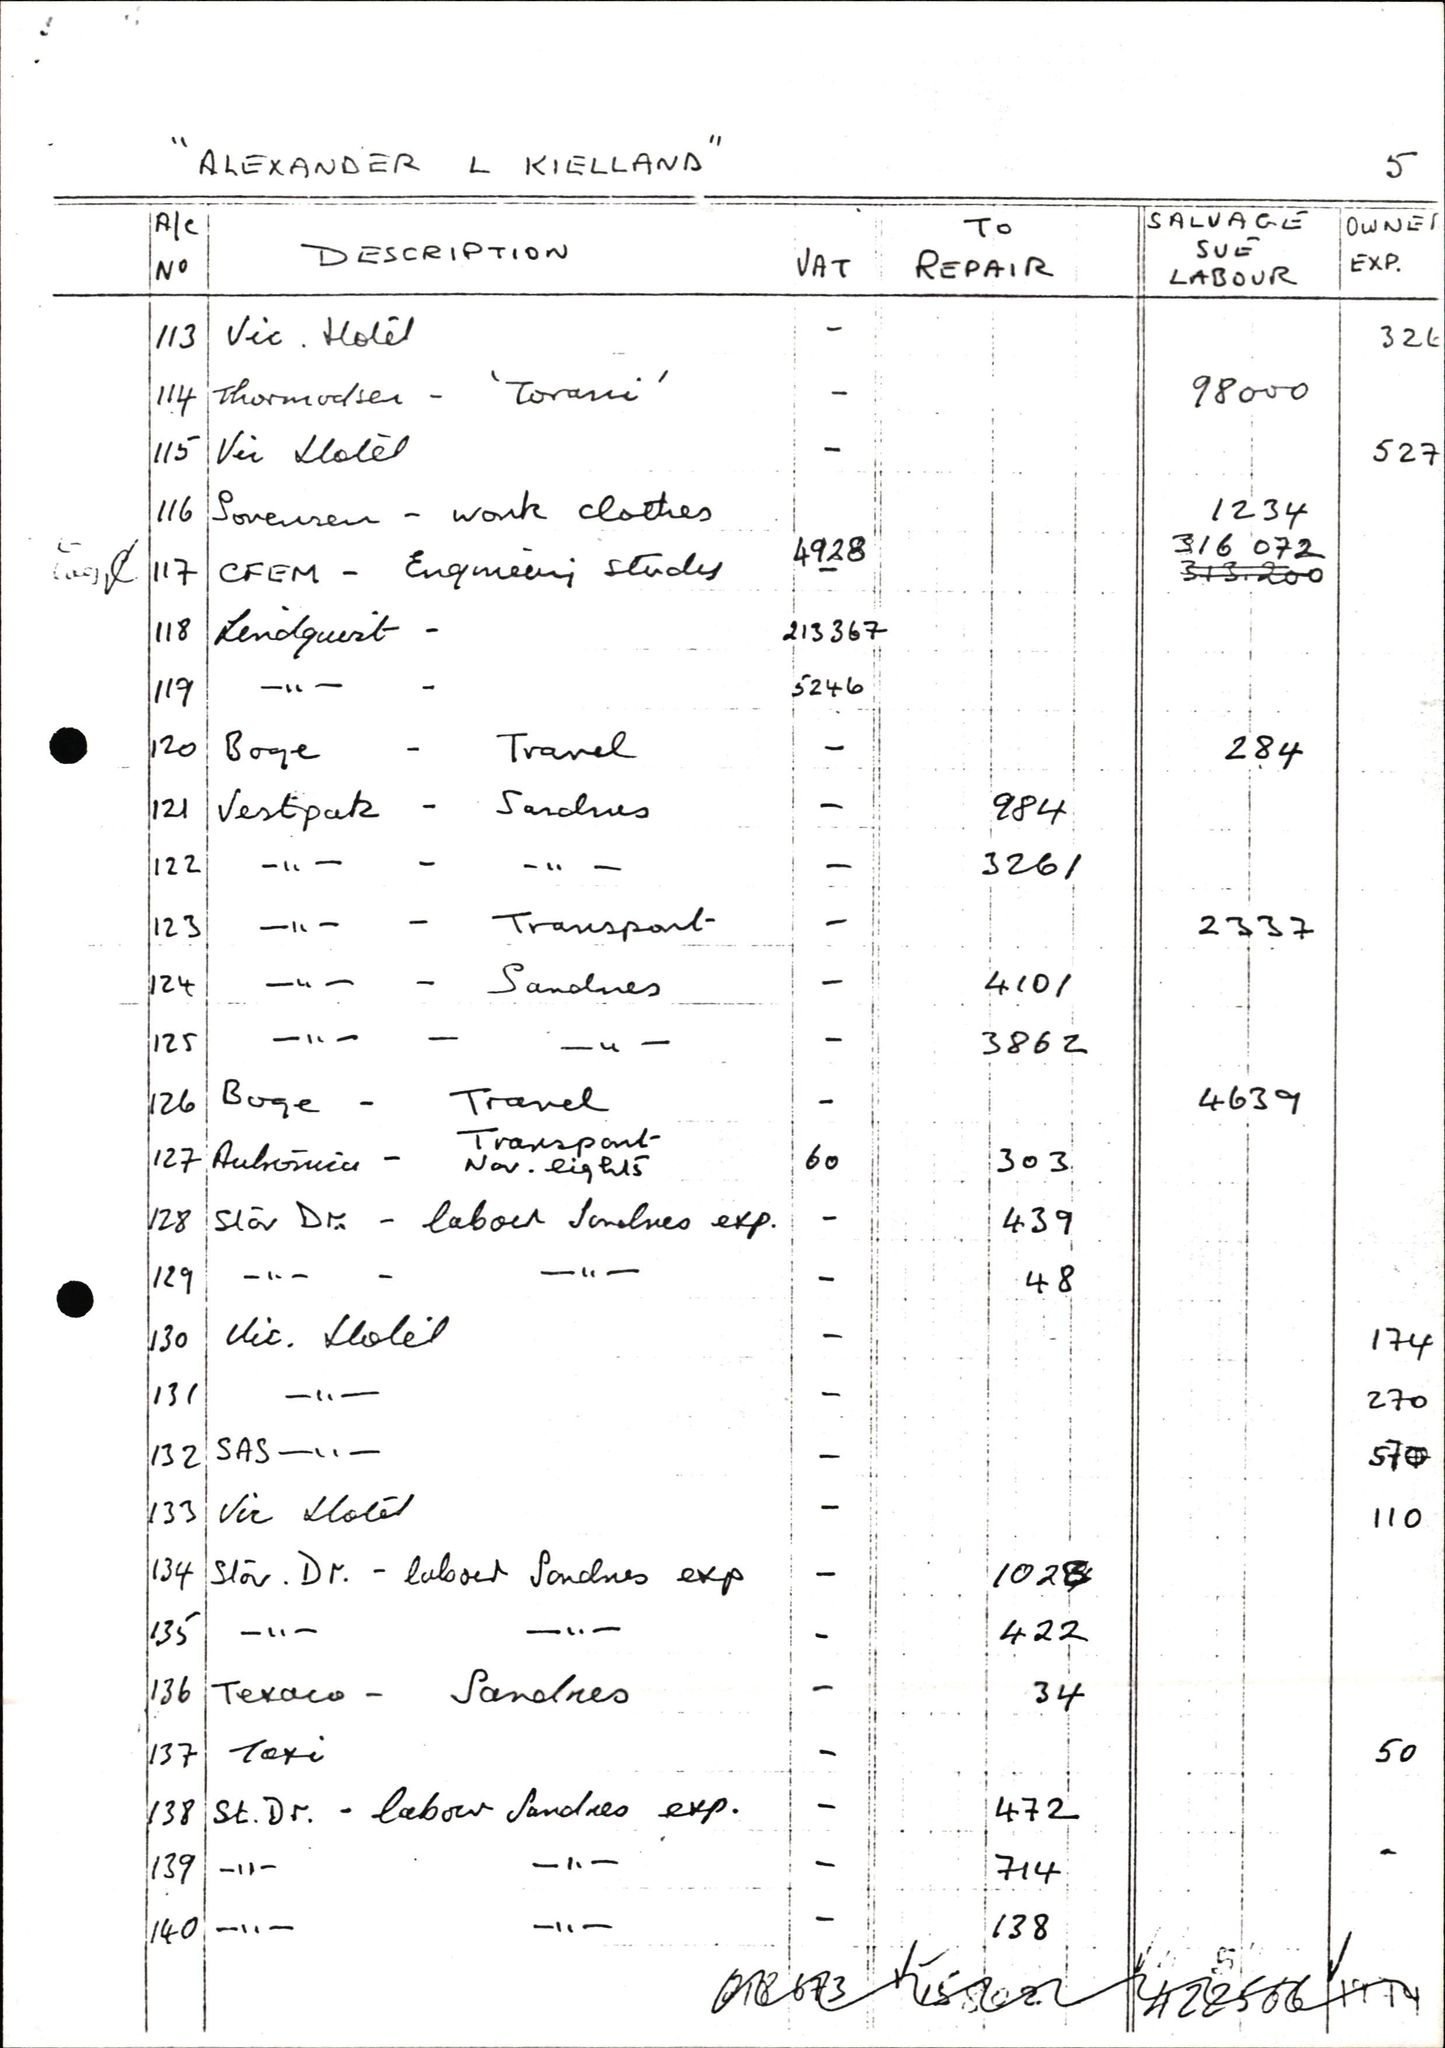 "ALEXANDER L KIELLAND" 5
A/C No DESCRIPTION VAT TO REPAIR SALVAGE SUE LABOUR OWNER EXP.
113 Vic. Hotel - 326
114 Thormodsen - 'Torani' - 98000
115 Vic Hotel - 527
116 Sorensen - work clothes 1234
316 072
117 CFEM - Engineering studies 4928 313.200
118 Lindquist - 213367
119 -"- - 5246
120 Boge - Travel - 284
121 Vestpak - Sandnes - 984
122 -"- - -"- - 3261
123 -"- - Transport - 2337
124 -"- - Sandnes - 4101
125 -"- - -"- - 3862
126 Boge - Travel - 4639
Transport
127 Autronica - Nav. lights 60 303
128 Stav Dr. - labour Sandnes exp. - 439
129 -"- - -"- - 48
130 Vic. Hotel - 174
131 -"- - 270
132 SAS -"- - 570
133 Vic Hotel - 110
134 Stav. Dr. - labour Sandnes exp - 1028
135 -"- -"- - 422
136 Texaco - Sandnes - 34
137 Taxi - 50
138 St. Dr. - labour Sandnes exp. - 472
139 -"- -"- - 714 -
140 -"- -"- - 138
422566